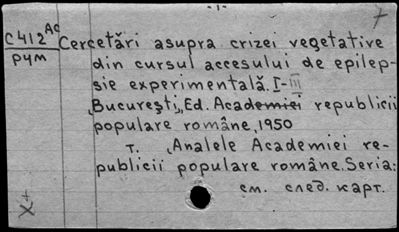 - 1 -
7
С412 АС Cercetări asupra crizei vegetative
рум din cursul accesului de epilep-
sie experimentală. I-III
București, Ed. Academiei republicii
populare române, 1950
т. Analele Academiei re-
publicii populare române. Seria:
см. след. карт.
X+